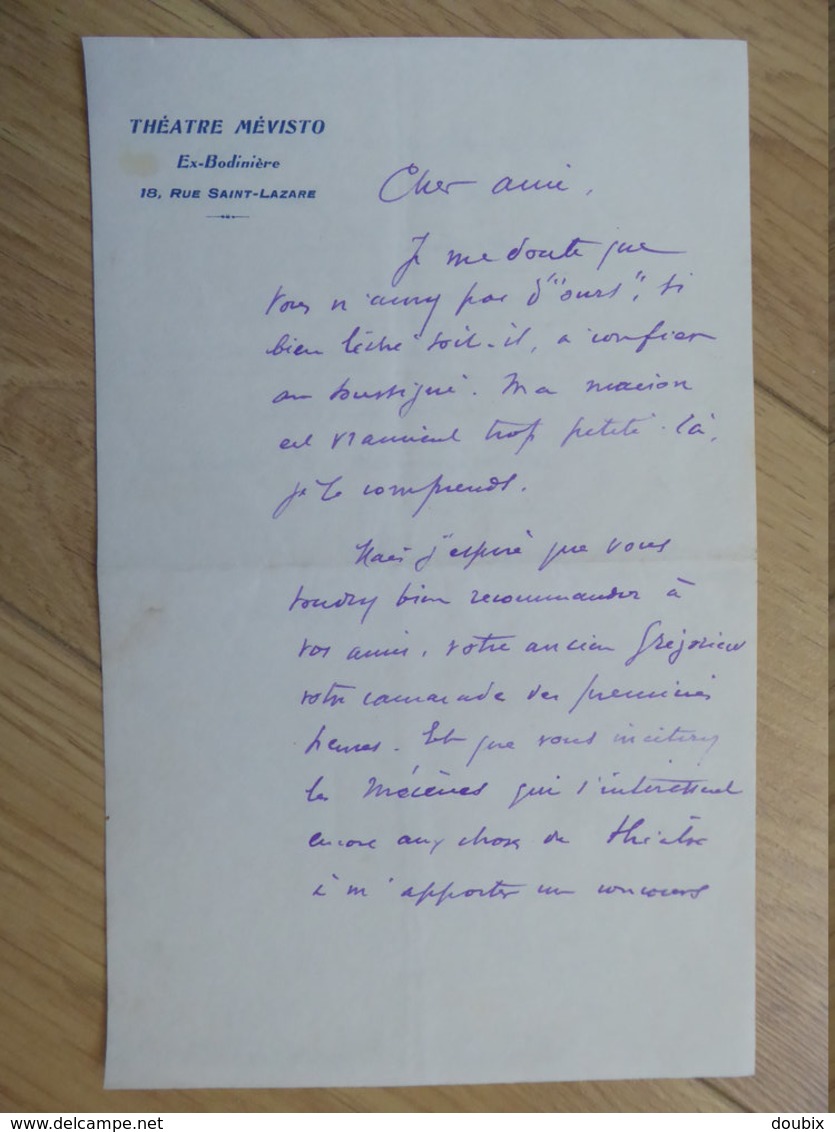 THÉATRE MÉVISTO
Ex-Bodinière
18, RUE SAINT-LAZARE
Cher ami,
Je me doute que
vous n'aurez pas d'"ours", si
bien léché soit-il, à confier
au soussigné. Ma maison
est vraiment trop petite. Là,
je le comprends.
Mais j'espère que vous
voudrez bien recommander à
vos amis, votre ancien Grégorien
votre camarade des premières
heures. Et que vous inciterez
les Mécènes qui s'intéressent
encore aux choses de théâtre
à m'apporter un concours
www.delcampe.net
doubix